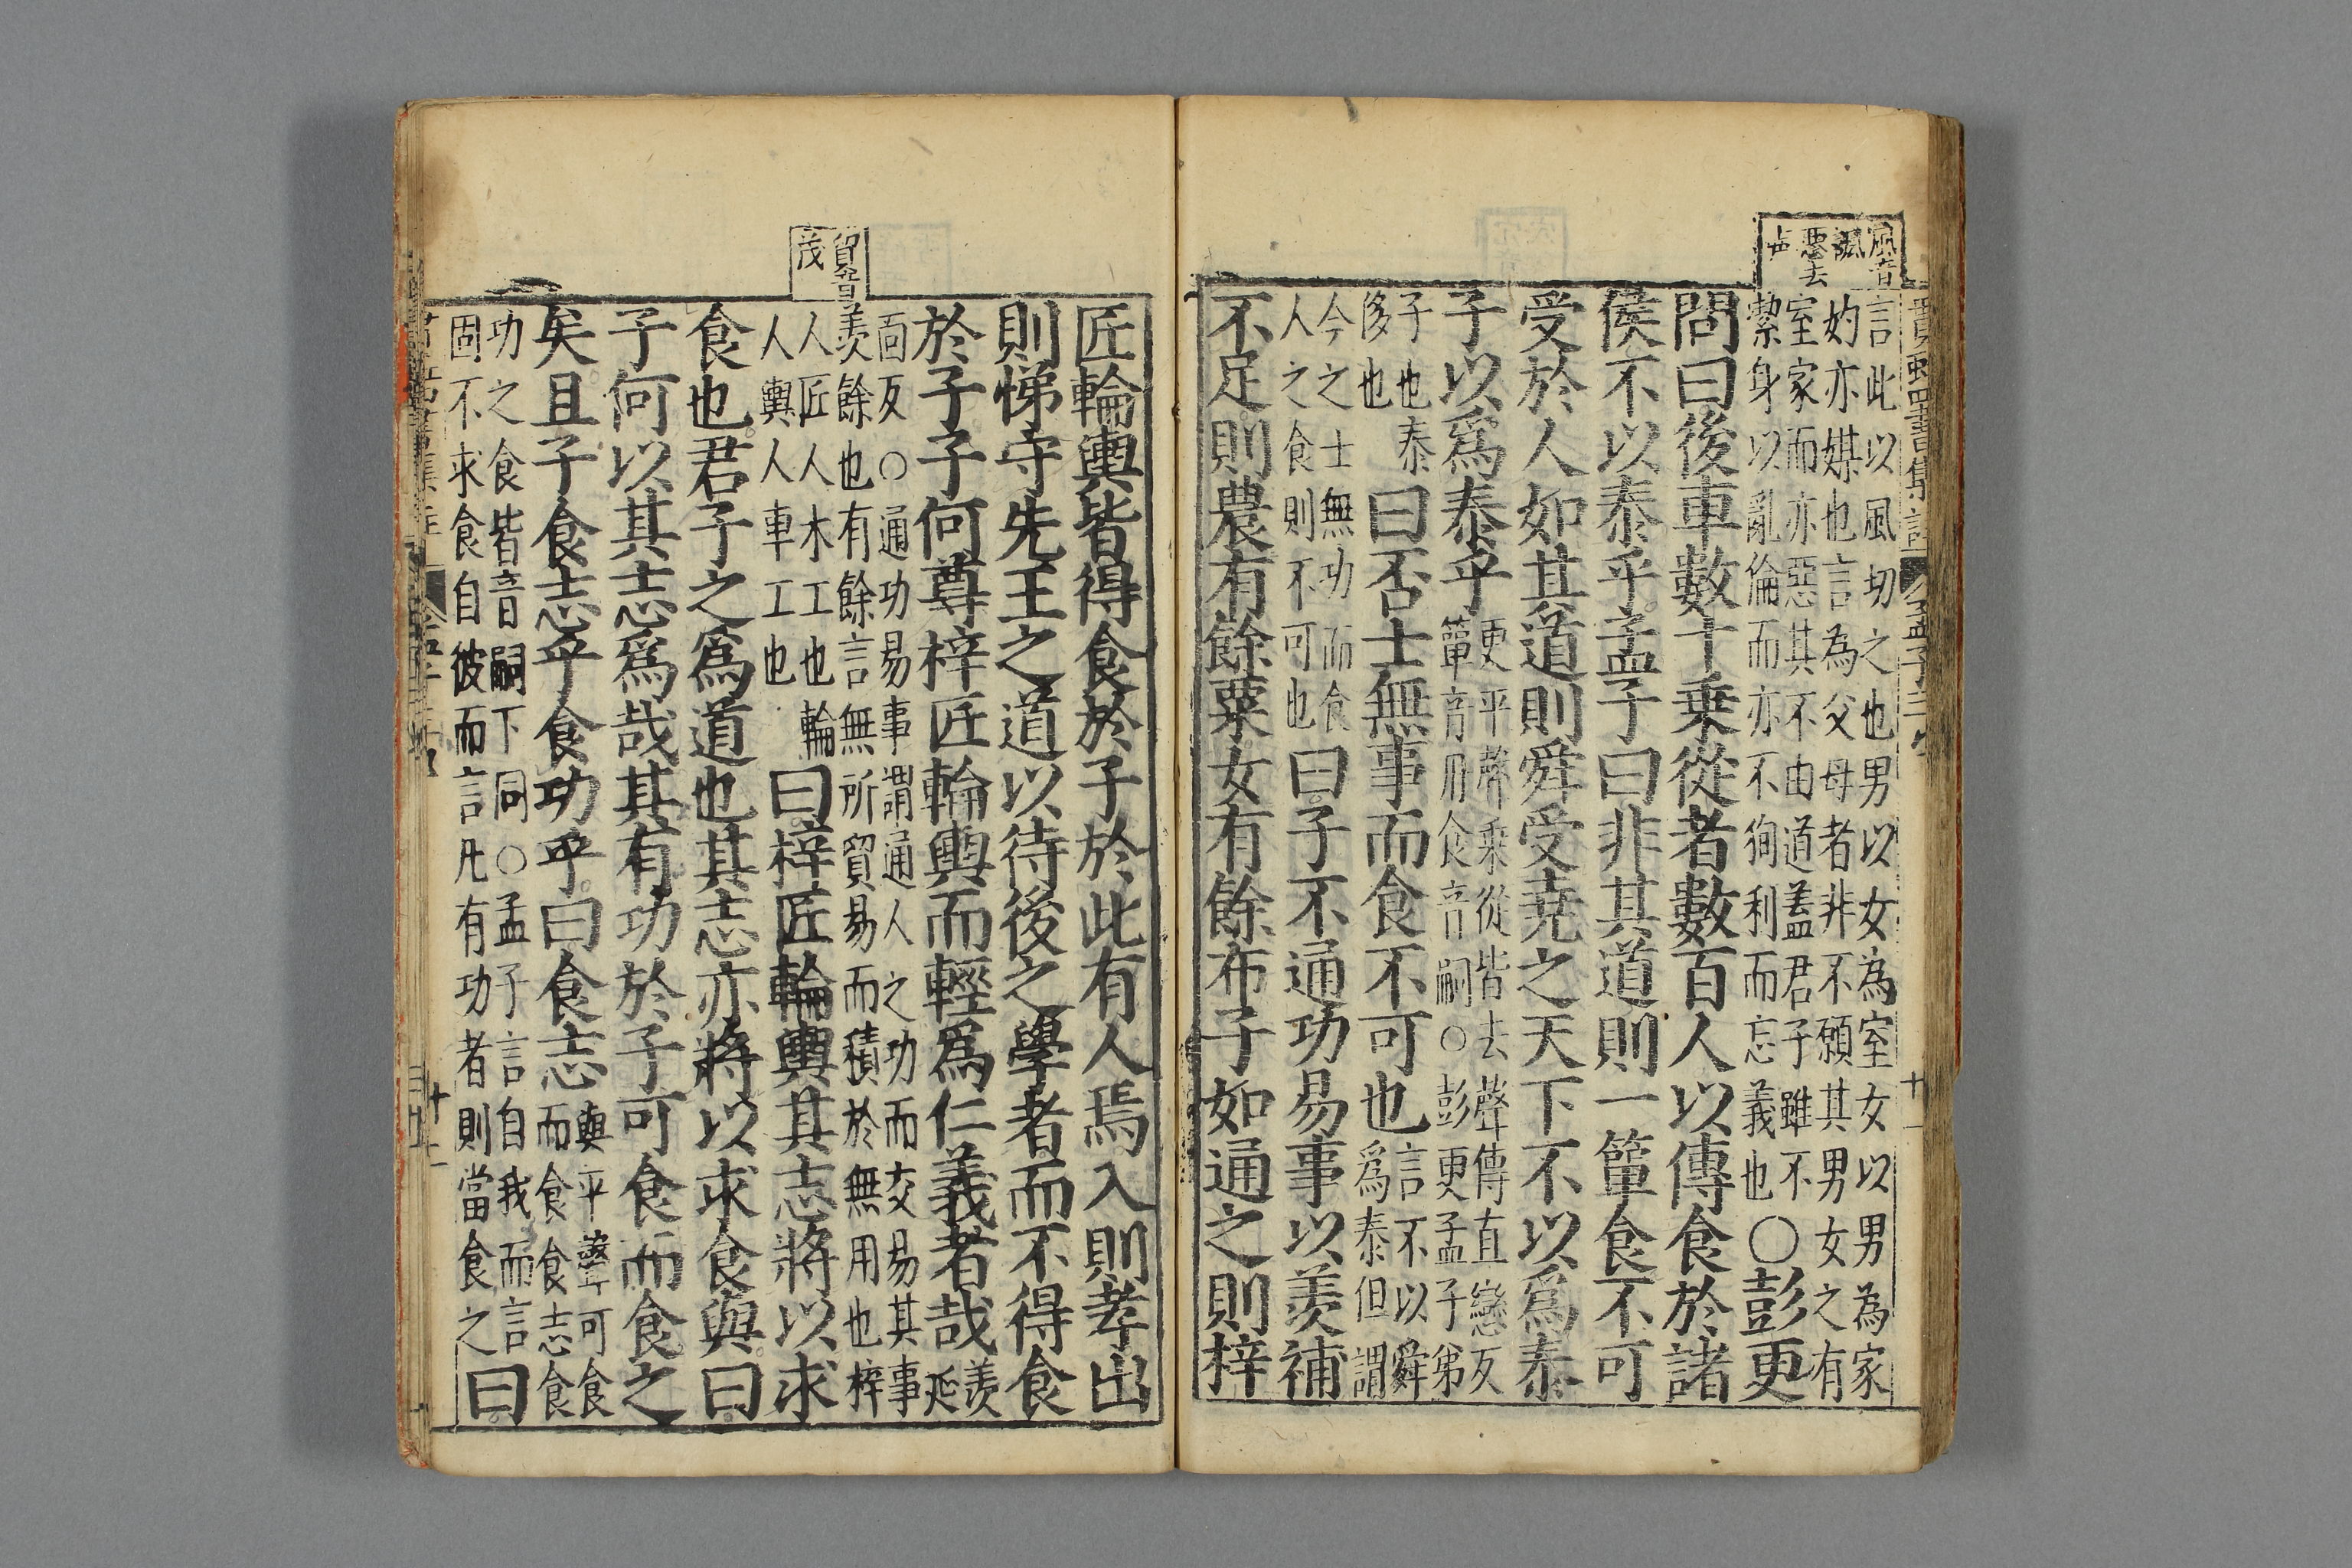 風音
諷
惡去
声
言此以風切之也男以女為室女以男為家
妁亦媒也言為父母者非不願其男女之有
室家而亦惡其不由道蓋君子雖不
㓗身以亂倫而亦不狥利而忘義也○彭更
問曰後車數十乗從者數百人以傳食於諸
侯不以泰乎孟子曰非其道則一簞食不可
受於人如其道則舜受堯之天下不以爲泰
子以爲泰乎更平聲乗從皆去聲傳直戀反
簞音丹食音嗣○彭更孟子弟
子也泰
侈也曰否士無事而食不可也言不以舜
爲泰但謂
今之士無功而食
人之食則不可也曰子不通功易事以羨補
不足則農有餘粟女有餘布子如通之則梓
貿音
茂
匠輪輿皆得食於子於此有人焉入則孝出
則悌守先王之道以待後之學者而不得食
於子子何尊梓匠輪輿而輕爲仁義者哉羨
延
面反○通功易事謂通人之功而交易其事
羨餘也有餘言無所貿易而積於無用也梓
人匠人木工也輪
人輿人車工也曰梓匠輪輿其志將以求
食也君子之爲道也其志亦將以求食與曰
子何以其志爲哉其有功於子可食而食之
矣且子食志乎食功乎曰食志輿平聲可食
而食食志食
功之食皆音嗣下同○孟子言自我而言
固不求食自彼而言凡有功者則當食之曰